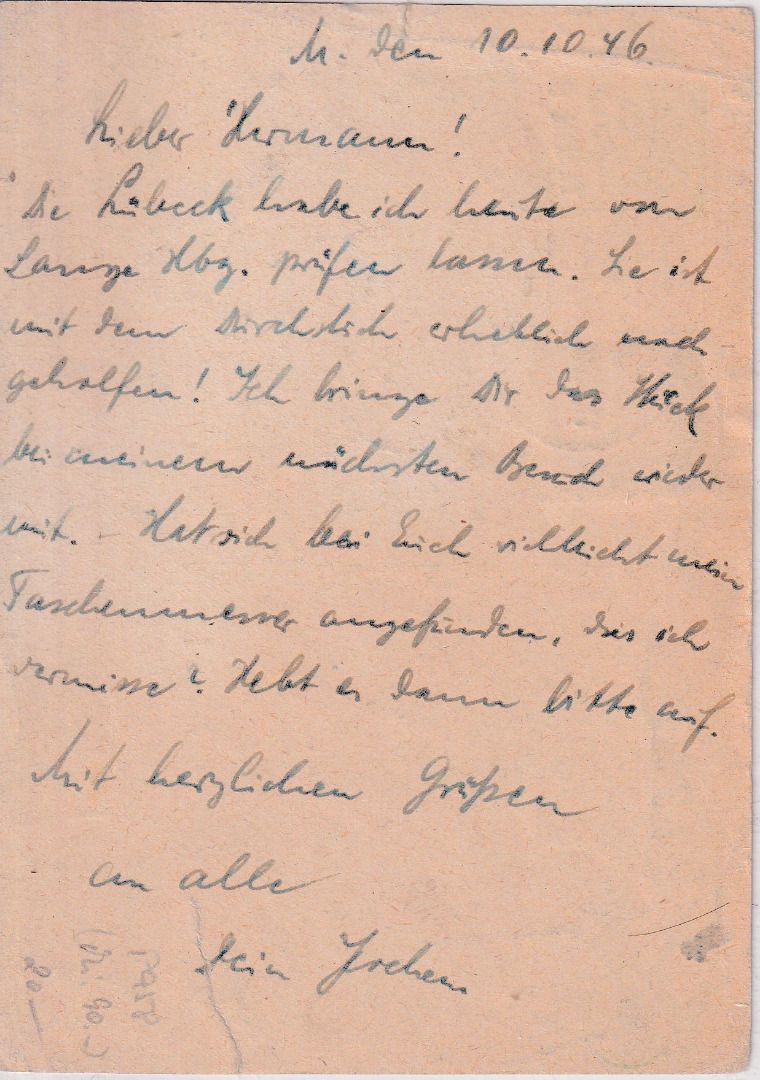 M. den 10.10.46.
Lieber Hermann!
Die Lübeck habe ich heute von
Lange Hbg. prüfen lassen. Sie ist
mit dem Durchstich erheblich nach
geholfen! Ich bringe Dir das Stück
bei meinem nächsten Besuch wieder
mit. - Hat sich bei Euch vielleicht mein
Taschenmesser angefunden, das ich
vermisse? Hebt es dann bitte auf.
Mit herzlichen Grüßen
an alle
Dein Jochen.
(Mi. 90.-)
20—